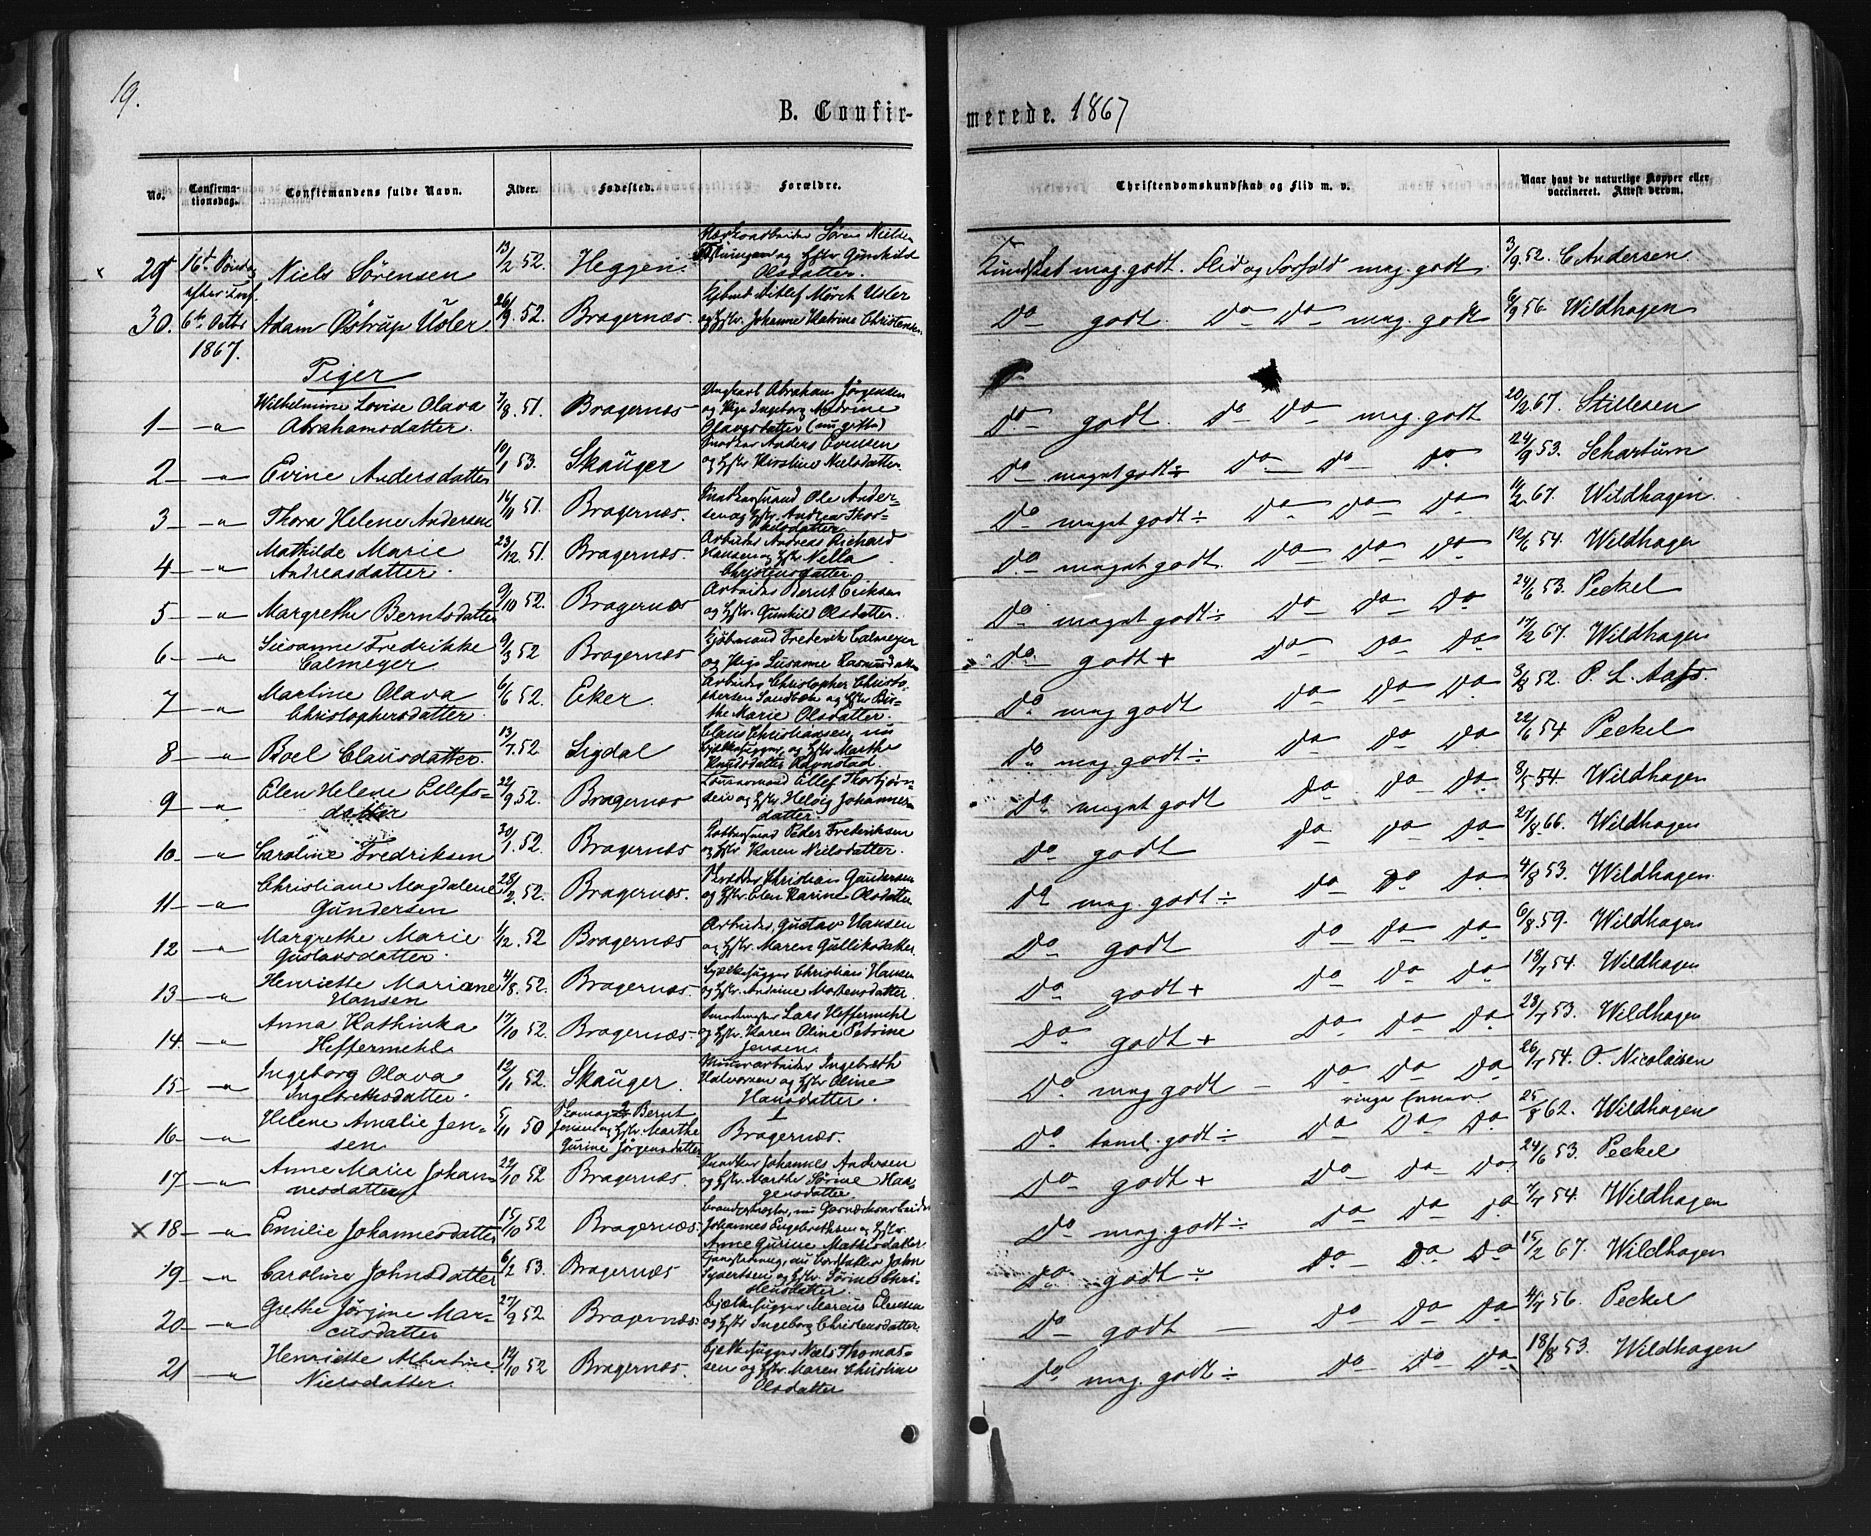 19.
B. Confir-
merede. 1867
No. Confirma-tionsdag. Confirmandens fulde Navn. Alder. Fødested. Forældre. Christendomskundskab og Flid m. v. Naar havt de naturlige Kopper eller vaccineret. Attest derom.
29 16d Søndag Niels Sørensen 13/2 52. Heggen. Søren Nielsen og Hstr. Gunhild Olsdatter. Kundskab mag. godt. Flid og Forhold mag. godt 3/9. 52. C Andersen
30. 6te Octbr 1867. Adam Østrup Usler 26/9 52. Bragernæs Kjbmd Ditlef Mørch Usler og Hstr. Johanne Katrine Christensen Do godt. Do Do mag. godt 6/9 56 Wildhagen
Piger
1 — " Wilhelmine Lovise Olava Abrahamsdatter. 7/8. 51. Bragernæs Ungkarl Abraham Jørgensen og Pige Ingeborg Andrine Olavsdatter (nu gifte) Do godt. Do Do mag. godt 20/2 67. Stillesen
2 — " Evine Andersdatter 10/1 53. Skauger Anders Evensen og Hstr. Kirstine Nielsdatter. Do meget godt ÷ Do Do Do 24/9 53. Schartum
3 — " Thora Helene Andersen 16/11 51. Bragernæs. Ole Andersen og Hstr. Andrea Thorkelsdatter Do meget godt ÷ Do Do Do 14/2 67. Wildhagen.
4 — " Mathilde Marie Andreasdatter. 23/12. 51. Bragernæs Arbeider Andreas Richard Hansen og Hstr. Nella Christensdatter. Do meget godt. Do Do Do 12/6 54. Wildhagen
5 — " Margrethe Berntsdatter 9/10 52. Bragernæs Arbeider Bernt Eriksen og Hstr. Gunhild Olsdatter. Do meget godt ÷ Do Do Do 24/6 53. Peckel
6 — " Susanne Fredrikke Calmeyer 9/3 52 Bragernæs Kjøbmand Frederik Calmeyer og Pige Susanne Rasmusdatter Do godt + Do Do Do 17/2 67. Wildhagen
7 — " Martine Olava Christophersdatter. 6/6 52. Eker. Arbeider Christopher Christophersen Sandbæk og Hstr. Birthe Marie Olsdatter. Do mag godt Do Do Do 3/8 52. P. L. Aass.
8 — " Boel Clausdatter. 13/7. 52. Sigdal Claus Christiansen, nu Bjelkehugger, og Hstr. Marthe Knudsdatter Ravnstad. Do mag godt ÷ Do Do Do 22/6 54 Peckel
9 — " Elen Helene Ellefsdatter 22/9 52. Bragernæs Ellef Thorbjørnsen og Hstr. Helvig Johannesdatter. Do meget godt Do Do Do 8/5 54. Wildhagen
10 — " Caroline Fredriksen 30/1. 52. Bragernæs Peder Frederiksen og Hstr. Karen Nielsdatter. Do godt Do Do Do 27/8. 66. Wildhagen
11 — " Christiane Magdalene Gundersen 28/2. 52. Bragernæs. Christian Gundersen og Hstr. Elen Karine Olsdatter Do mag. godt ÷ Do Do Do 4/8 53. Wildhagen.
12 — " Margrethe Marie Gustavsdatter. 1/12. 52 Bragernæs Arbeider, Gustav Hansen og Hstr. Maren Gulliksdatter. Do godt Do Do Do 6/8. 59. Wildhagen
13 — " Henriette Mariane Hansen 4/8. 52. Bragernæs. Bjelkehugger Christian Hansen og Hstr. Andrine Mortensdatter. Do godt + Do Do Do 18/7 54. Wildhagen
14. — " Anna Kathinka Heffermehl 17/10 52. Bragernæs. Lars Heffermehl og Hstr. Karen Oline Petrine Jensen. Do godt + Do Do Do 28/7 53. Wildhagen
15 — " Ingeborg Olava Ingebrethsdatter. 12/11 52. Skauger. Ingebreth Halvorsen og Hstr. Oline Hansdatter. Do mag godt — Do Do Do 26/7 54. O. Nicolaisen
16 — " Helene Amalie Jensen 5/11 50 Skomag. Bernt Jensen og Hstr. Marthe Gurine Jørgensdatter Bragernæs. Do taml. godt ÷ ringe Do Do Do 25/8 62. Wildhagen
17 — " Anne Marie Johannesdatter 22/10 52 Bragernæs. Johannes Andersen og Hstr. Marthe Sørine Haagensdatter. Do godt + Do Do Do 24/6 53. Peckel
× 18 — " Emilie Johannesdatter 15/10 52 Bragernæs Johannes Engebrethsen og Hstr. Anne Gurine Mathisdatter Do mag. godt ÷ Do Do Do 7/7 54. Wildhagen
19 — " Caroline Johnsdatter 6/2 53. Bragernæs John Syvertsen og Hstr. Sørine Christensdatter. Do godt ÷ Do Do Do 15/2 67. Wildhagen
20 — " Grethe Jørgine Marcusdatter 27/9 52 Bragernæs. Bjelkehugger Marcus Olsen og Hstr. Ingeborg Christensdatter. Do godt — Do Do Do 4/7 56. Peckel
21 — " Henriette Albertine Nielsdatter. 14/10 52 Bragernæs. Bjelkehugger Niels Thomassen og Hstr. Maren Christine Olsdatter Do mag. godt ÷ Do Do Do 18/8 53. Wildhagen